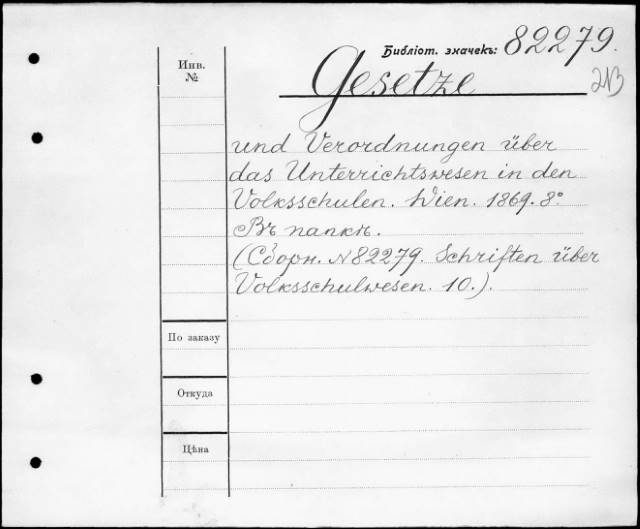 Библіот. значекъ: 82279.
Инв.
№
Gesetze
und Verordnungen über
das Unterrichtswesen in den
Volksschulen. Wien. 1869. 8°
Въ папкѣ.
(Сборн. №82279. Schriften über
Volksschulwesen. 10.).
По заказу
Откуда
Цѣна